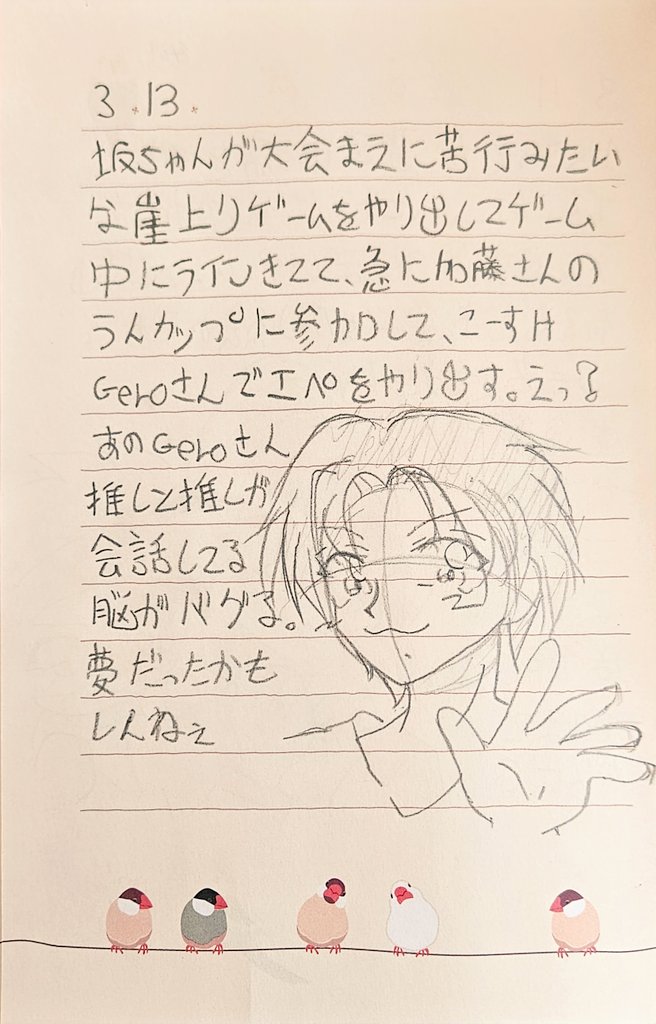 3.13.
坂ちゃんが大会まえに苦行みたい
な崖上りゲームをやり出してゲーム
中にラインきてて、急に加藤さんの
うんカップに参加して、こーすけ
Geroさんでエペをやり出す。えっ?
あのGeroさん
推しと推しが
会話してる
脳がバグる。
夢だったかも
しんねぇ